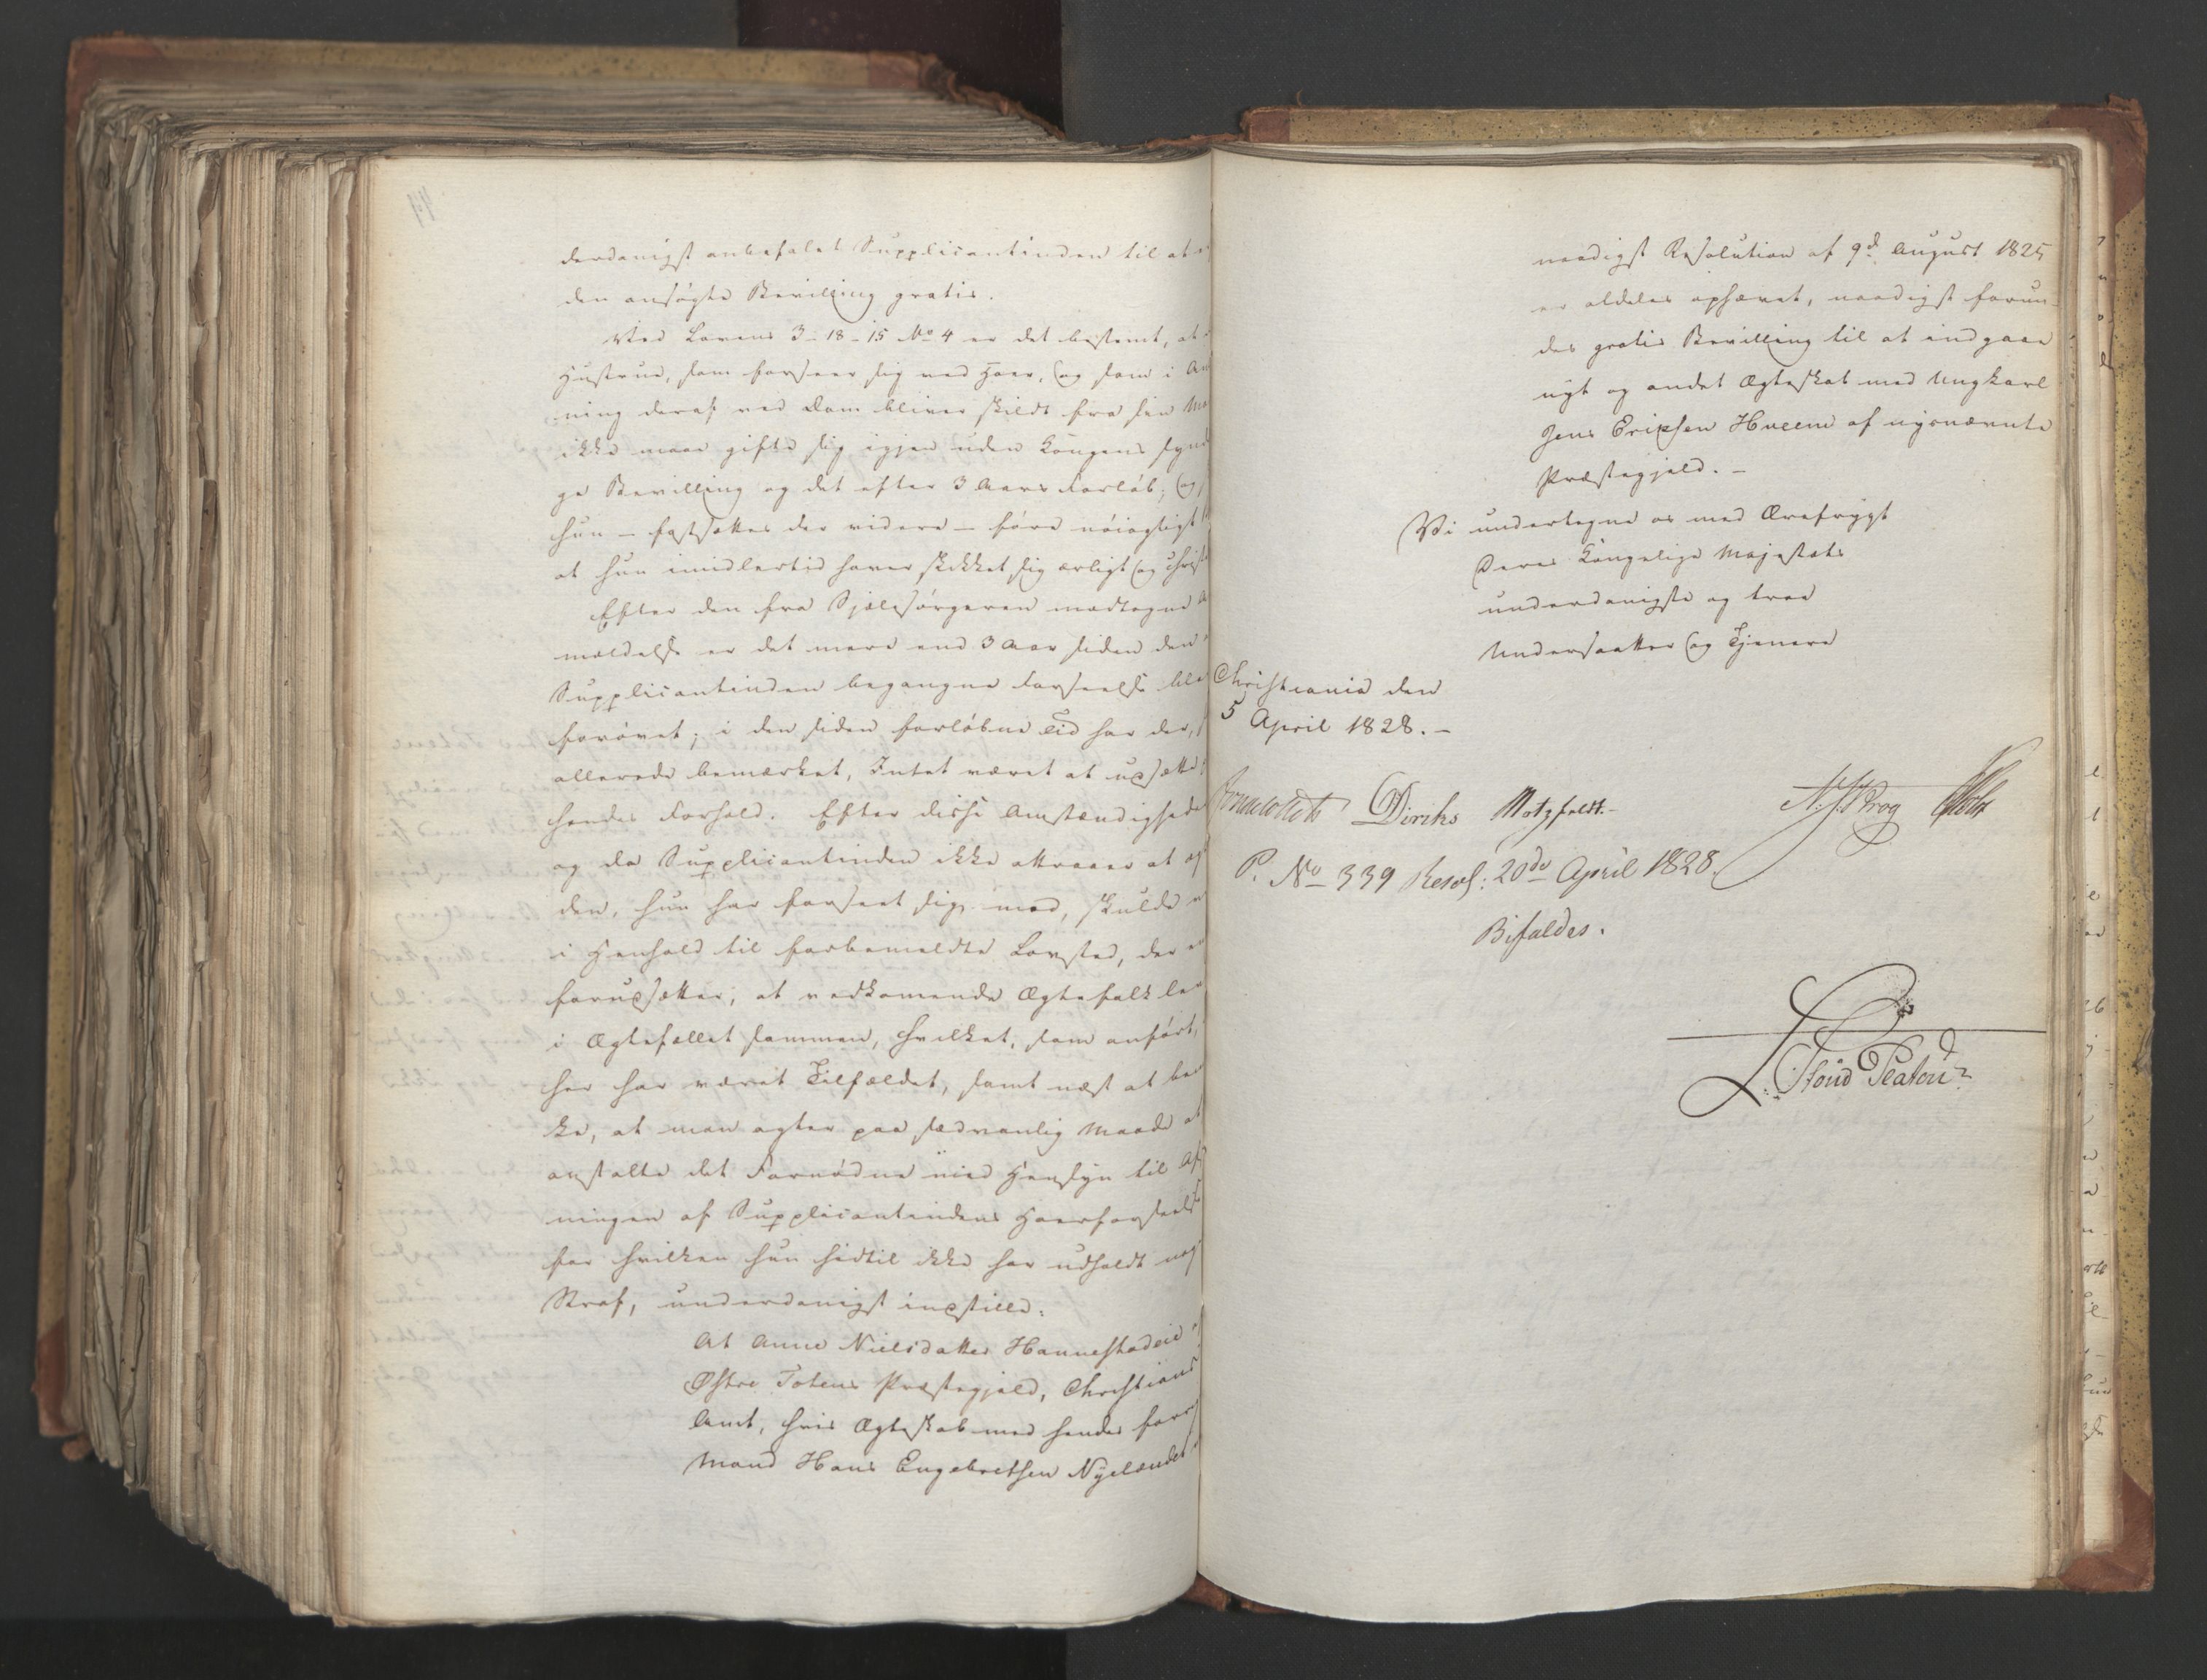 derdanigst anbefalet Supplicantinden til at
den ansögte Bevilling gratis.
Ved Lovens 3-18-15 No 4 er det bestemt, at
Hustrue, som forseer sig ved Hoer, og som i An
ning deraf ved Dom bliver skildt fra sin Ma
ikke maae gifte sig igjen uden Kongens synd
ge Bevilling og det efter 3 Aars Forløb; og
hun - fastsættes der videre - føre nöiagtigt
at hun imidlertid haver skikket sig ærligt og Christ
Efter den fra Sjælesörgeren modtagne A
mældelse er det mere end 3 Aar siden den
Supplicantinden begangne Forseelse blev
forövet; i den siden forløbne Tid har der,
allerede bemærket, Intet været at udsætte
hendes Forhold. Efter disse Omstændighede
og da Supplicantinden ikke attraaer at æg
den, hun har forseet sig med, skulde
i Henhold til forbemeldte Lovsted, der
forudsætter, at vedkomende Ægtefolk lev
i Ægtefællet sammen, hvilket, som anført,
her har været Tilfældet, samt næst at be
ke, at man agter paa sædvanlig Maade at
anstalte det Fornødne med Hensyn til Af
ningen af Supplicantindens Hoerforseelse
for hvilken hun hidtil ikke har udholdt nog
Straf, underdanigst indstille:
At Anne Nielsdatter Hannestadeie
Østre Totens Præstegjeld, Christians
Amt, hvis Ægteskab med hendes forr
Mand Hans Engebretsen Nyelændet
naadigst Resolution af 9d August 1825
er aldeles ophævet, naadigst forun-
des gratis Bevilling til at indgaae
nyt og andet Ægteskab med Ungkarl
Jens Erichsen Hveem af nysnævnte
Præstegjeld. -
Vi undertegne os med Ærefrygt
Deres Kongelige Majestæts
underdanigste og troe
Undersaatter og Tjenere
Christiania den
5 April 1828. -
Diriks Motzfeldt.-
P. No 339 Resol: 20de April 1828.
Bifaldes.